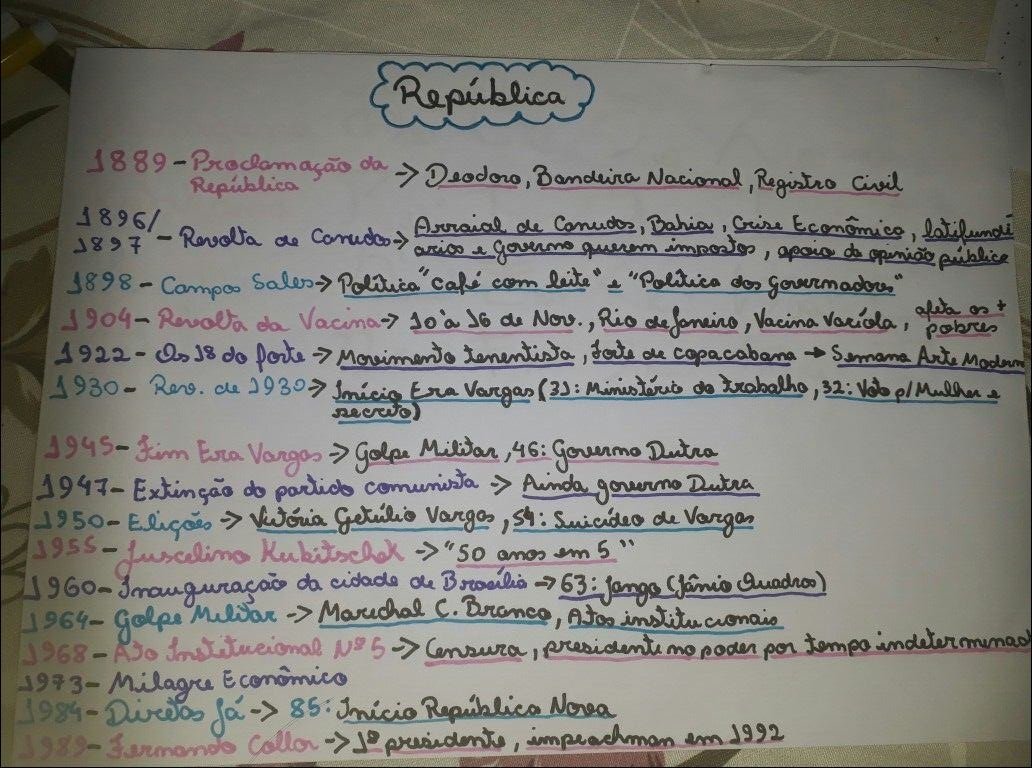 República
1889 - Proclamação da República -> Deodoro, Bandeira Nacional, Registro Civil
1896/1897 - Revolta de Canudos -> Arraial de Canudos, Bahia, Crise Econômico, latifundiários e Governo querem impostos, apoio da opinião pública
1898 - Campos Sales -> Política "café com leite" e "Política dos Governadores"
1904 - Revolta da Vacina -> 10 à 16 de Nov., Rio de Janeiro, Vacina Varíola, afeta os + pobres
1922 - Os 18 do forte -> Movimento tenentista, forte de copacabana -> Semana Arte Modern
1930 - Rev. de 1930 -> Início Era Vargas (31: Ministério do trabalho, 32: Voto p/ Mulher e secreto)
1945 - Fim Era Vargas -> Golpe Militar, 46: Governo Dutra
1947 - Extinção do partido comunista -> Ainda governo Dutra
1950 - Elições -> Vitória Getúlio Vargas, 54: Suicídeo de Vargas
1955 - Juscelino Kubitschek -> "50 anos em 5"
1960 - Inauguração da cidade de Brasília -> 63: Jango (Jânio Quadros)
1964 - Golpe Militar -> Marechal C. Branco, Atos institucionais
1968 - Ato Institucional Nº 5 -> Censura, presidente no poder por tempo indeterminad
1973 - Milagre Econômico
1984 - Diretas Já -> 85: Início República Nova
1989 - Fernando Collor -> 1º presidente, impeachman em 1992